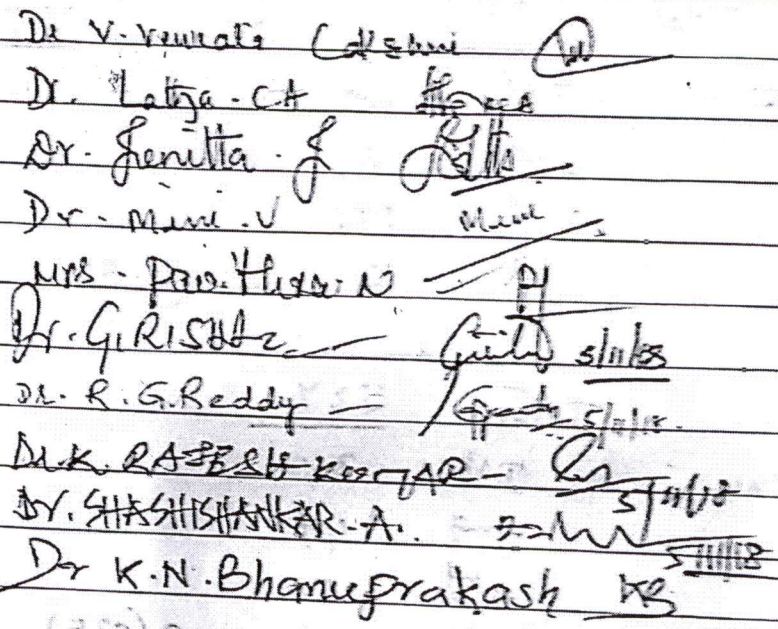 Dr V. Venkata Lakshmi
Dr. Latha. C A
Dr. Jenitta. J
Dr. Mini. V Mini
Mrs. Pavithra. N
Dr. GIRISH 5/11/18
Dr. R. G. Reddy 5/11/18
Dr. K. RAJESH KUMAR 5/11/18
Dr. SHASHISHANKAR. A. 5/11/18
Dr K.N. Bhanuprakash